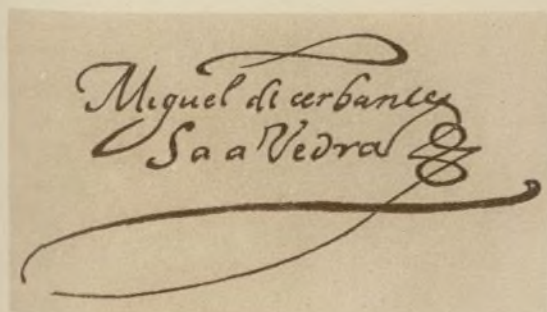 Miguel di cerbantes
SaaVedra